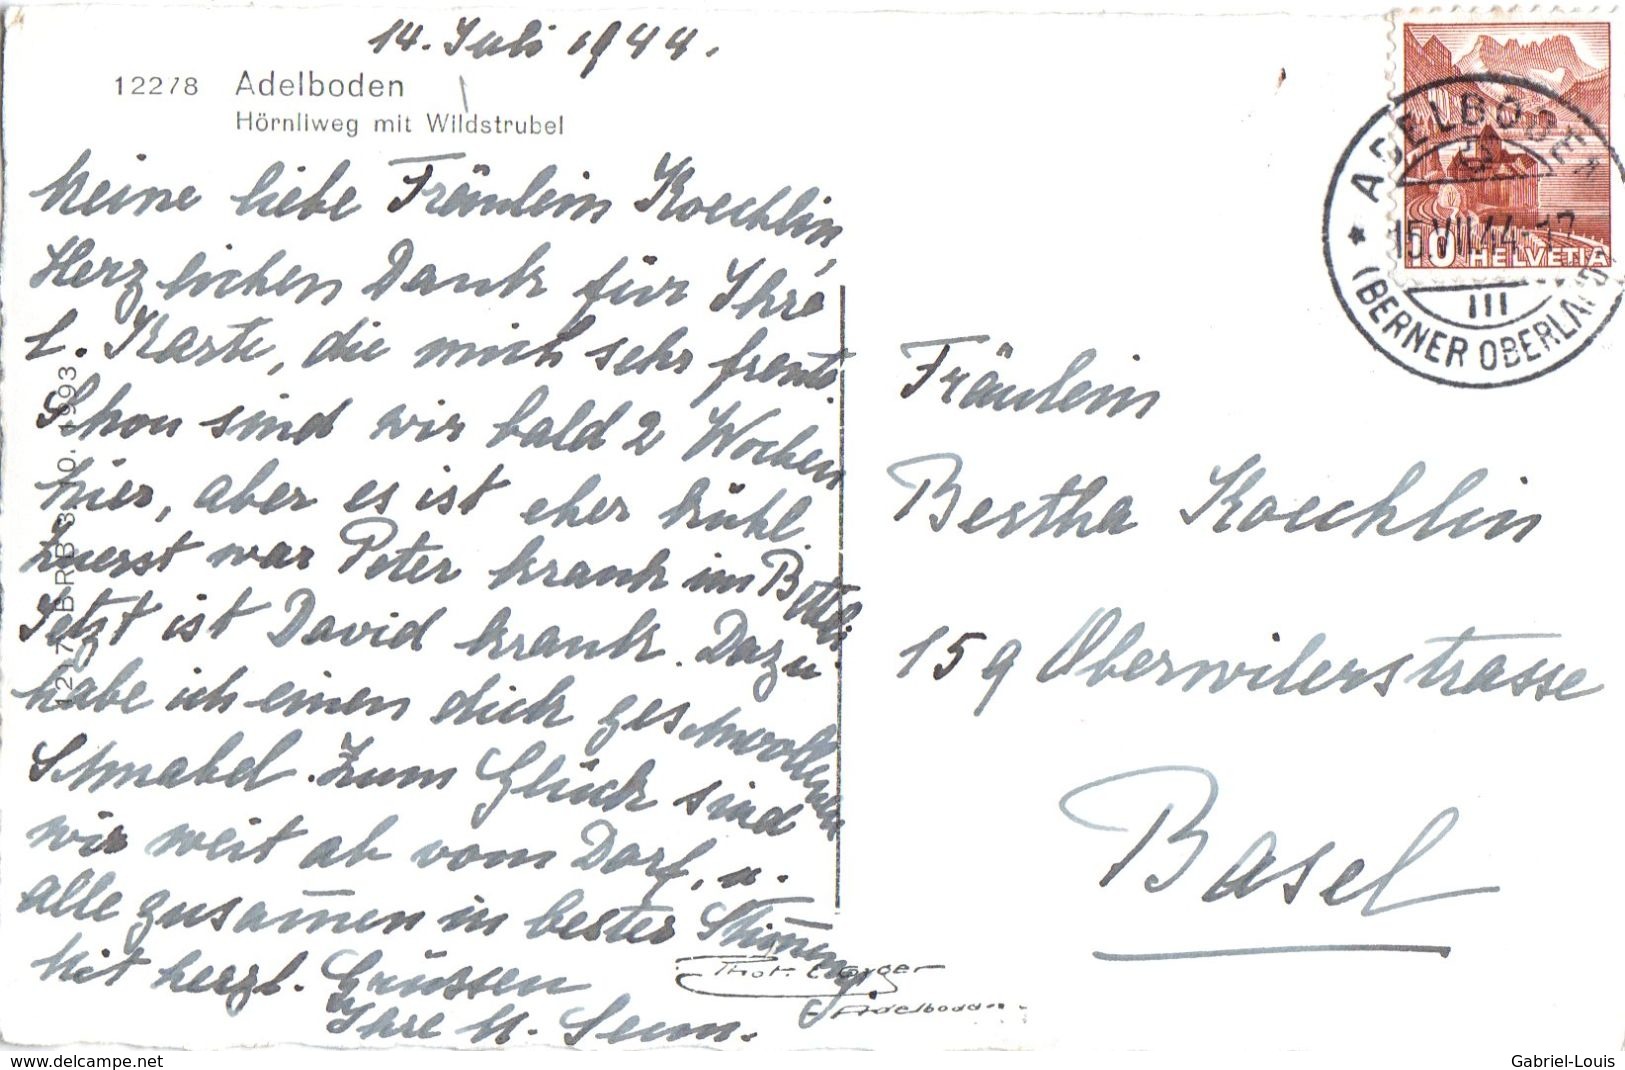 14. Juli 1944.
12278 Adelboden
Hörnliweg mit Wildstrubel
Meine liebe Fräulein Koechlin,
Herzlichen Dank für Ihre
l. Karte, die mich sehr freute
Schon sind wir bald 2 Wochen
hier, aber es ist eher kühl.
Zuerst war Peter krank im Bettli.
Jetzt ist David krank. Dazu
habe ich einen dick geschwollenen
Schnabel. Zum Glück sind
wir weit ab vom Dorf, u.
alle zusam̄en in bester Stim̄ung.
Mit herzl. Grüssen
Ihre M.
Phot. Gyger
Adelboden
BRB 3. 10. 1993
ADELBODEN
15.VII.44-17
III
(BERNER OBERLAND)
10 HELVETIA
Fräulein
Bertha Koechlin
159 Oberwilerstrasse
Basel
delcampe.net
Gabriel-Louis